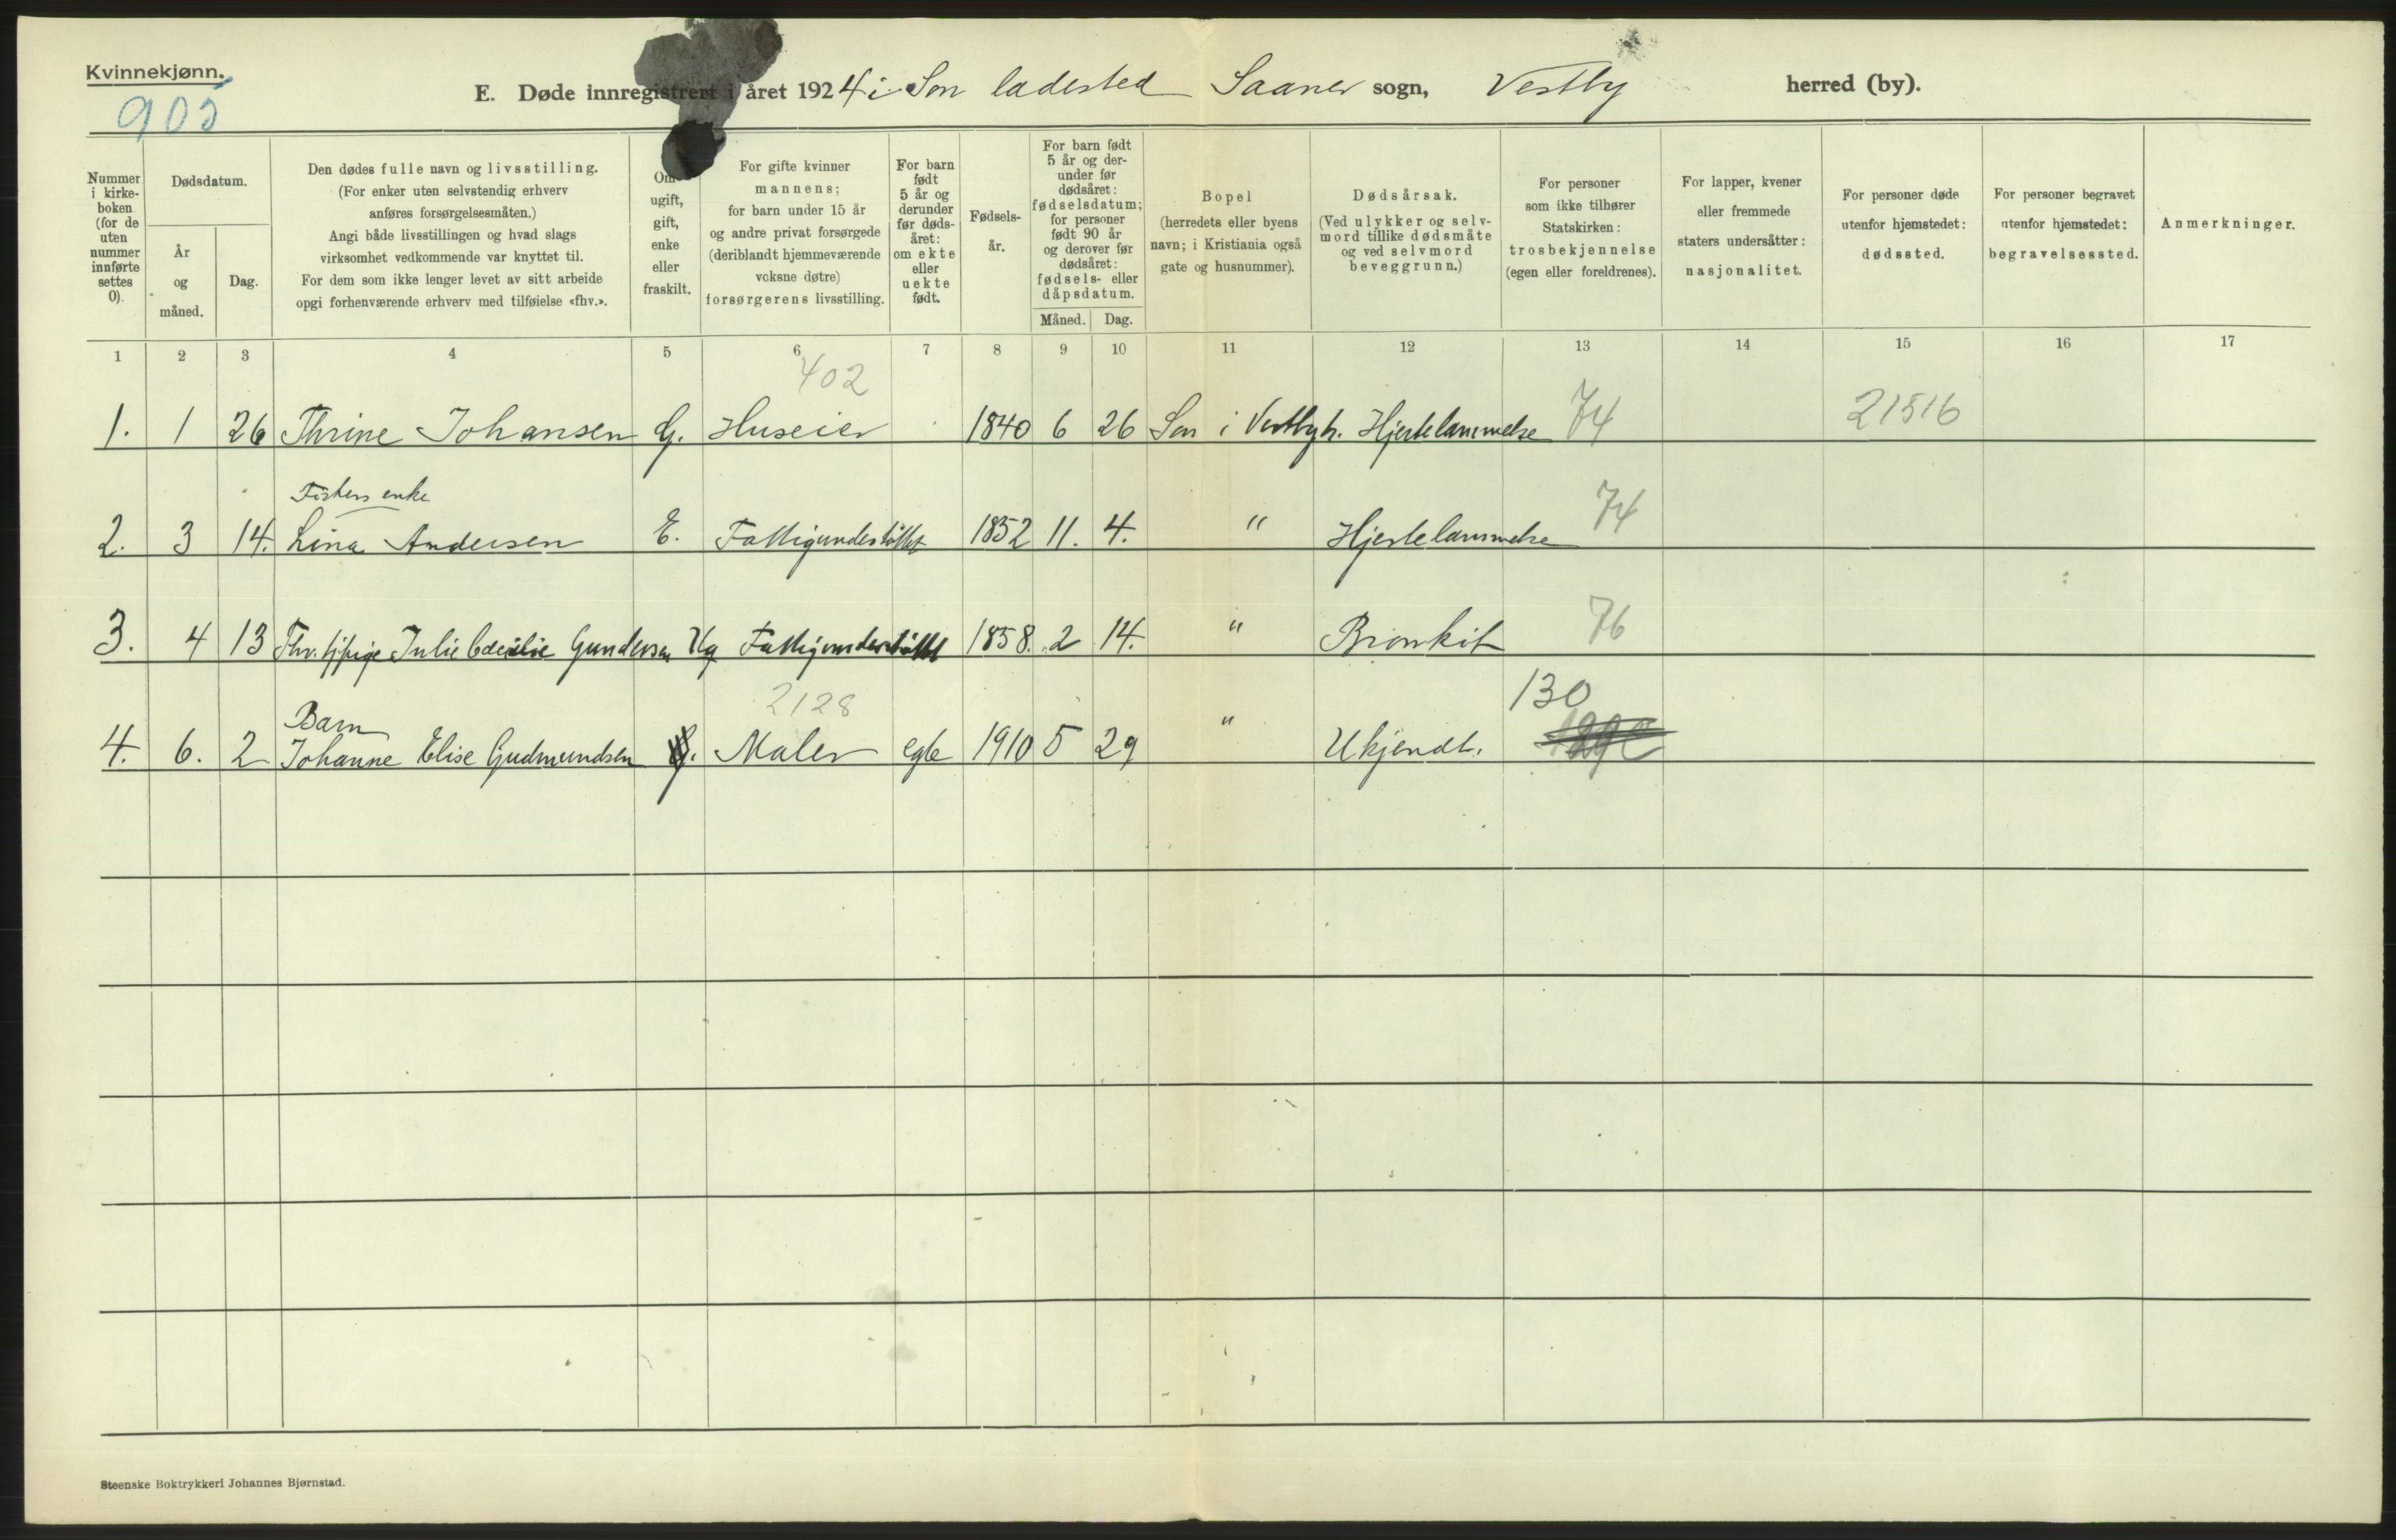 Kvinnekjønn.
905
E. Døde innregistrert i året 1924 i Son ladested Saaner sogn, Vestby herred (by).
Nummer i kirke-boken (for de uten nummer innførte settes 0).
Dødsdatum.
År og måned.
Dag.
Den dødes fulle navn og livsstilling.
(For enker uten selvstendig erhverv
anføres forsørgelsesmåten.)
Angi både livsstillingen og hvad slags
virksomhet vedkommende var knyttet til.
For dem som ikke lenger levet av sitt arbeide
opgi forhenværende erhverv med tilføielse «fhv.».
Om ugift, gift, enke eller fraskilt.
For gifte kvinner
mannens;
for barn under 15 år
og andre privat forsørgede
(deriblandt hjemmeværende
voksne døtre)
forsørgerens livsstilling.
For barn født 5 år og derunder før døds-året: om ekte eller uekte født.
Fødsels-år.
For barn født 5 år og der-under før dødsåret: fødselsdatum; for personer født 90 år og derover før dødsåret: fødsels- eller dåpsdatum.
Måned. Dag.
Bopel
(herredets eller byens
navn; i Kristiania også
gate og husnummer).
Dødsårsak.
(Ved ulykker og selv-
mord tillike dødsmåte
og ved selvmord
beveggrunn.)
For personer
som ikke tilhører
Statskirken:
trosbekjennelse
(egen eller foreldrenes).
For lapper, kvener
eller fremmede
staters undersåtter:
nasjonalitet.
For personer døde
utenfor hjemstedet:
dødssted.
For personer begravet
utenfor hjemstedet:
begravelsessted.
Anmerkninger.
1 2 3 4 5 6 7 8 9 10 11 12 13 14 15 16 17
402
1. 1 26 Thrine Johansen G. Huseier 1840 6 26 Son i Vestby h. Hjertelammelse 74 21516
Fiskers enke
2. 3 14. Lina Andersen E. Fattigunderstøttet 1852 11. 4. " Hjertelammelse 74
3. 4 13 Fhv. Julie Gundersen Ug Fattigunderstøttet 1858. 2 14. " Bronkit 76
2128 130
Barn
4. 6. 2 Johanne Elise Gudmundsen Maler egte 1910 5 29 " Ukjendt.
Steenske Boktrykkeri Johannes Bjørnstad.